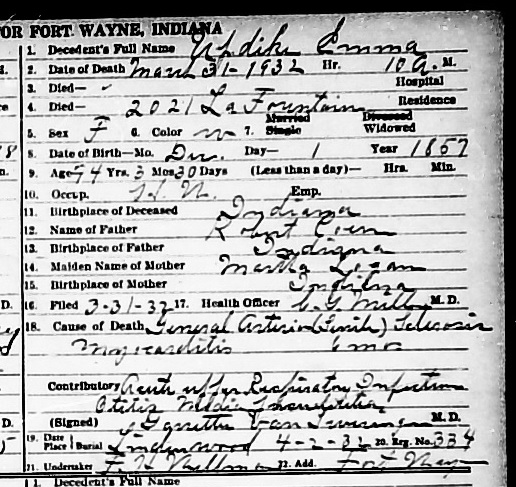 OR FORT WAYNE, INDIANA
1. Decedent's Full Name Updike Emma
2. Date of Death March 31-1932 Hr. 10 A. M.
3. Died— Hospital
4. Died— 2021 La Fountain Residence
Married Divorced
5. Sex F 6. Color w 7. Single Widowed
8. Date of Birth—Mo. Dec. Day— 1 Year 1857
9. Age 74 Yrs. 3 Mos 30 Days (Less than a day)— Hrs. Min.
10. Occup. H. W. Emp.
11. Birthplace of Deceased Indiana
12. Name of Father Robert
13. Birthplace of Father Indiana
14. Maiden Name of Mother Martha Logan
15. Birthplace of Mother Indiana
16. Filed 3-31-32 17. Health Officer M. D.
18. Cause of Death General Arterio (Senile) Sclerosis
Myocarditis 6 mos
Contributory Acute upper Respiratory Infection
Otitis Media
(Signed) Garrette Van Sweringen M. D.
19. Date Place Burial Lindenwood 4-2-32 20. Reg. No. 334
21. Undertaker 22. Add. Fort Way
1. Decedent's Full Name